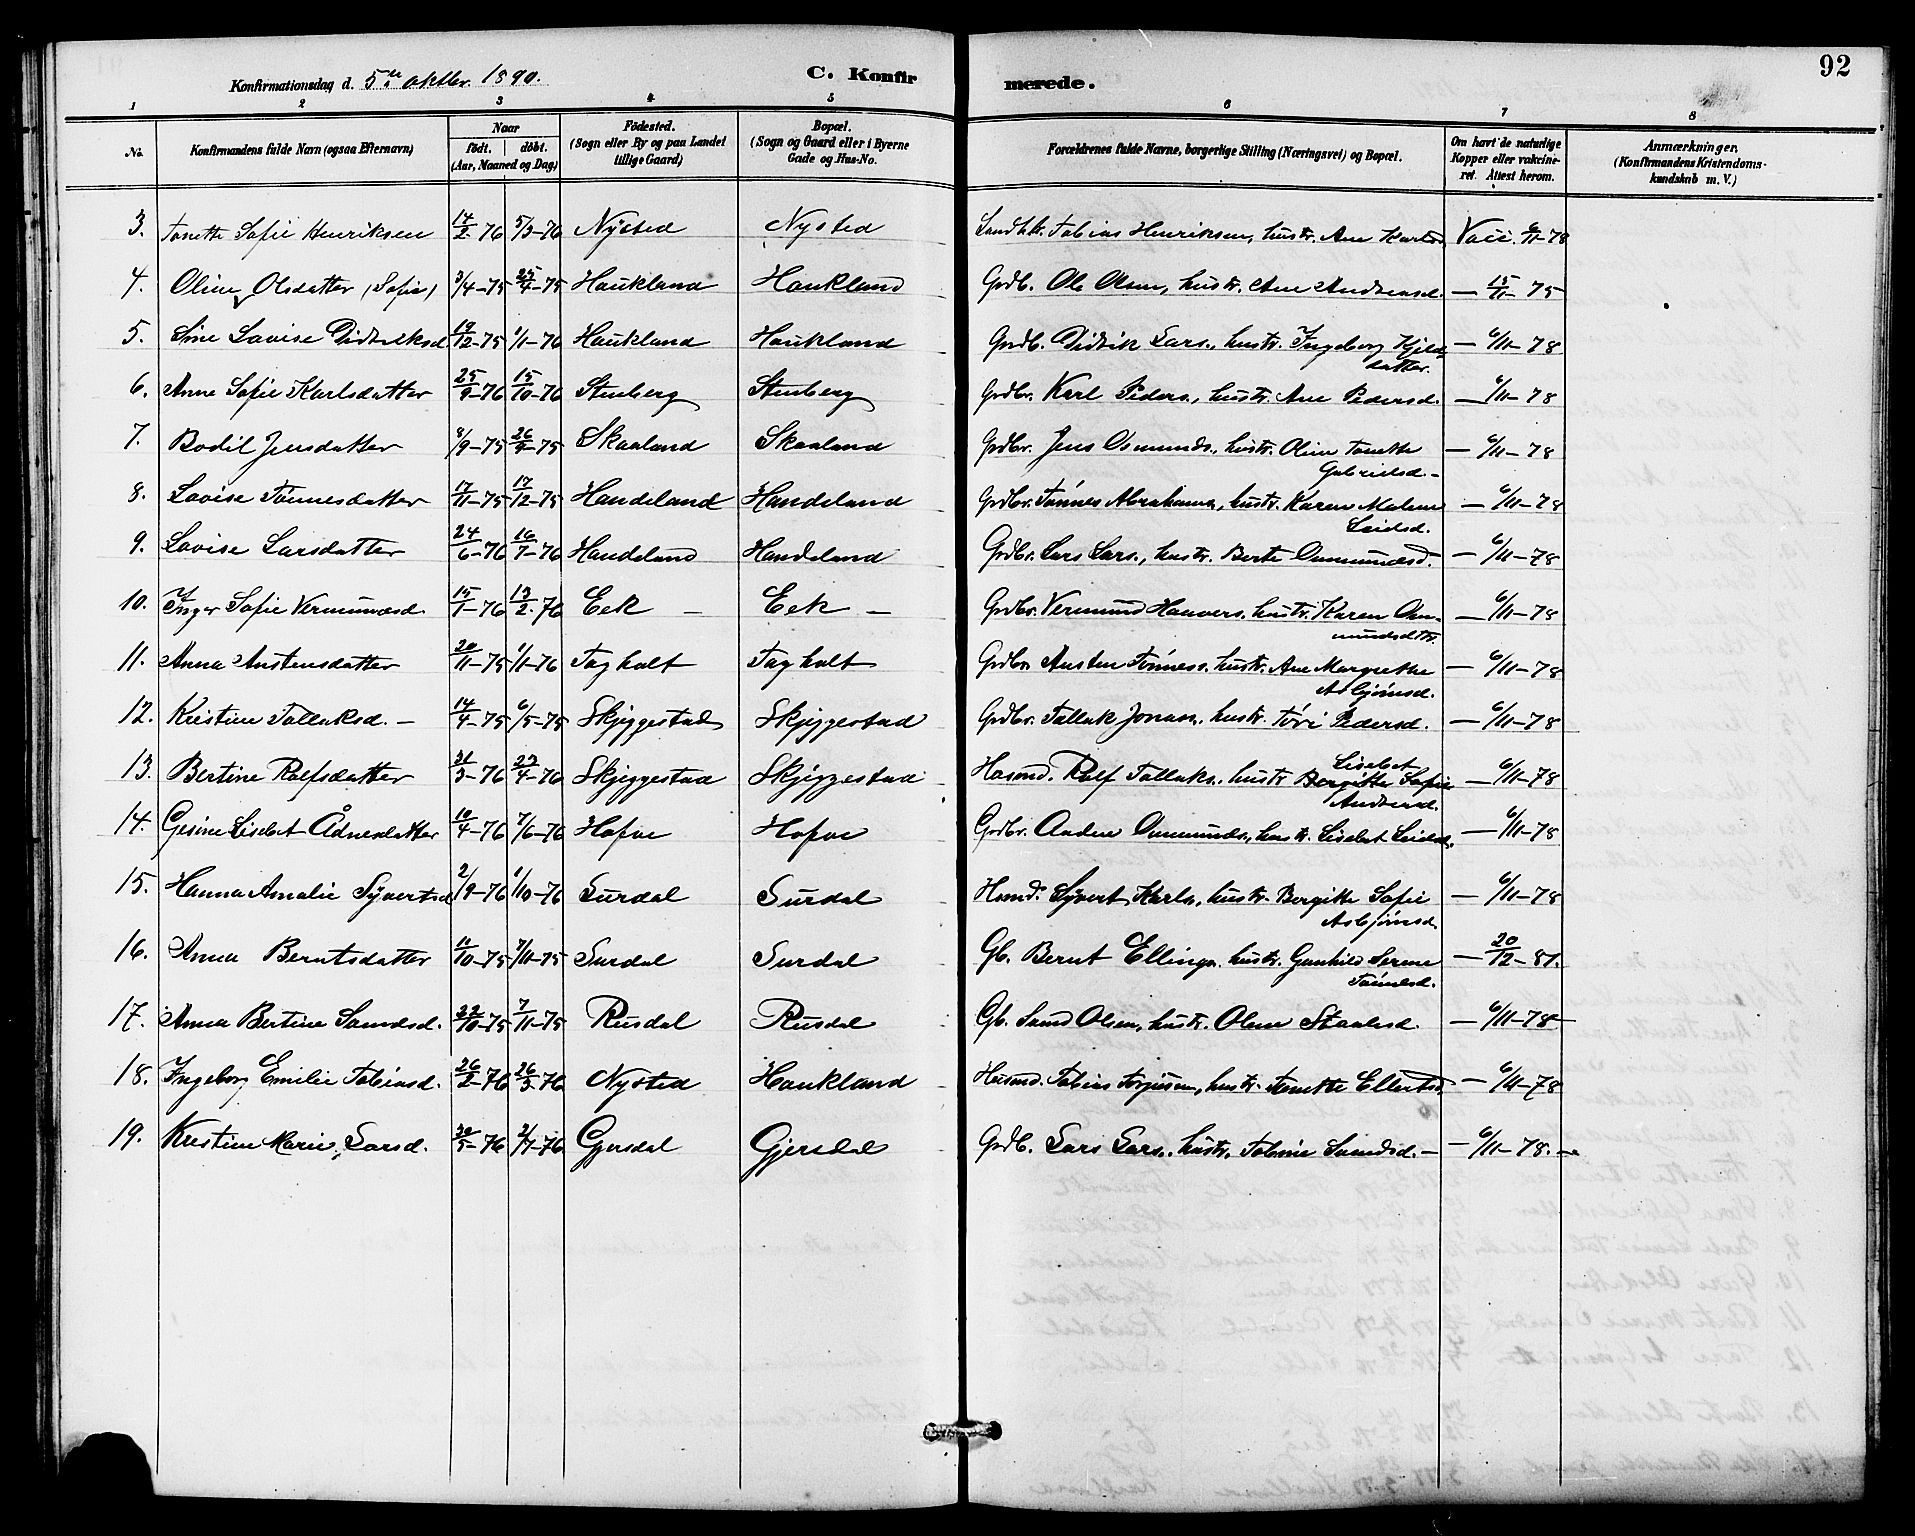 92
Konfirmationsdag d. 5te oktbr. 1890. C. Konfirmerede.
1 2 3 4 5 6 7 8
No. Konfirmandens fulde Navn (ogsaa Efternavn) Naar födt. döbt. (Aar, Maaned og Dag) Födested. (Sogn eller By og paa Landet tillige Gaard) Bopæl. (Sogn og Gaard eller i Byerne Gade og Hus-No. Forældrenes fulde Navne, borgerlige Stilling (Næringsvei) og Bopæl. Om havt de naturlige Kopper eller vakcineret. Attest herom. Anmærkninger. (Konfirmandens Kristendomskundskab m. V.)
3. Tonette Sofie Henriksen 14/2-76 5/3-76 Nysted Nysted Tobias Henriksen, hustr. Ane Karlsd. Vacc. 6/11-78
4. Oline Olsdatter (Sofie) 3/4-75 25/4-75 Haukland Haukland Grdb. Ole Olsen, hustr. Ane Andreasd. — 15/11-75
5. Sine Lovise Didriksd. 19/12-75 1/1-76 Haukland Haukland Grdb. Didrik Lars., hustr. Ingeborg Kjels
datter. — 6/11-78
6. Anne Sofie Karlsdatter 25/9-76 15/10-76 Stenberg Stenberg Grdbr. Karl Peders., hustr. Ane Pedersd. — 6/11-78
7. Bodil Jensdatter 8/9-75 26/9-75 Skaaland Skaaland Grdbr. Jens Osmunds., hustr. Oline Tonette
Gabrielsd. — 6/11-78
8. Lovise Tönnesdatter 17/11-75 17/12-75 Handeland Handeland Grdbr. Tönnes Abrahams., hustr. Karen Malene
Leidsd. — 6/11-78
9. Lovise Larsdatter 24/6-76 16/7-76 Handeland Handeland Grdbr. Lars Lars., hustr. Berte Osmundsd. — 6/11-78
10. Inger Sofie Vermundsd. 15/1-76 13/2-76 Eek — Eek — Grdbr. Vermund Hanvers., hustr. Karen Os-
mundsdtr. — 6/11-78
11. Anna Austensdatter 20/11-75 1/1-76 Tagholt Tagholt Grdbr. Austen Tönness. hustr. Ane Margrethe
Asbjörnsd. — 6/11-78
12. Kristine Tallaksd. — 14/4-75 6/5-75 Skjeggestad Skjeggestad Grdbr. Tallak Jonass. hustr. Töri Pedersd. — 6/11-78
13. Bertine Rolfsdatter 31/3-76 23/4-76 Skjeggestad Skjeggestad Husmd. Rolf Tallaks., hustr. Lisebet
Bergitte Sofie
Andersd. — 6/11-78
14. Gesine Lisebet Ådnesdatter 10/4-76 7/6-76 Hofve Hofve Grdbr. Osmunds., hustr. Lisebet Leidsd. — 6/11-78
15. Hanna Amalie Syvertsd. 2/9-76 1/10-76 Surdal Surdal Husmd. Syvert Karls., hustr. Bergitte Sofie
Asbjörnsd. — 6/11-78
16. Anna Berntsdatter 11/10-75 7/11-75 Surdal Surdal Gb. Bernt Ellings. hustr. Gunhild Serine
Tönnesd. — 20/12-81.
17. Anna Bertine Samdsd. 22/10-75 7/11-75 Rusdal Rusdal Gb. Samd Olsen, hustr. Olene Staalesd. — 6/11-78
18. Ingeborg Emilie Tobiasd. 26/2-76 26/3-76 Nysted Haukland Husmd. Tobias Torjusen, hustr. Tonette Ellertsd. — 6/11-78
19. Kristine Marie Larsd. 30/5-76 2/7-76 Gjersdal Gjersdal Grdb. Lars Lars., hustr. Tobine Samdsd. — — 6/11-78.